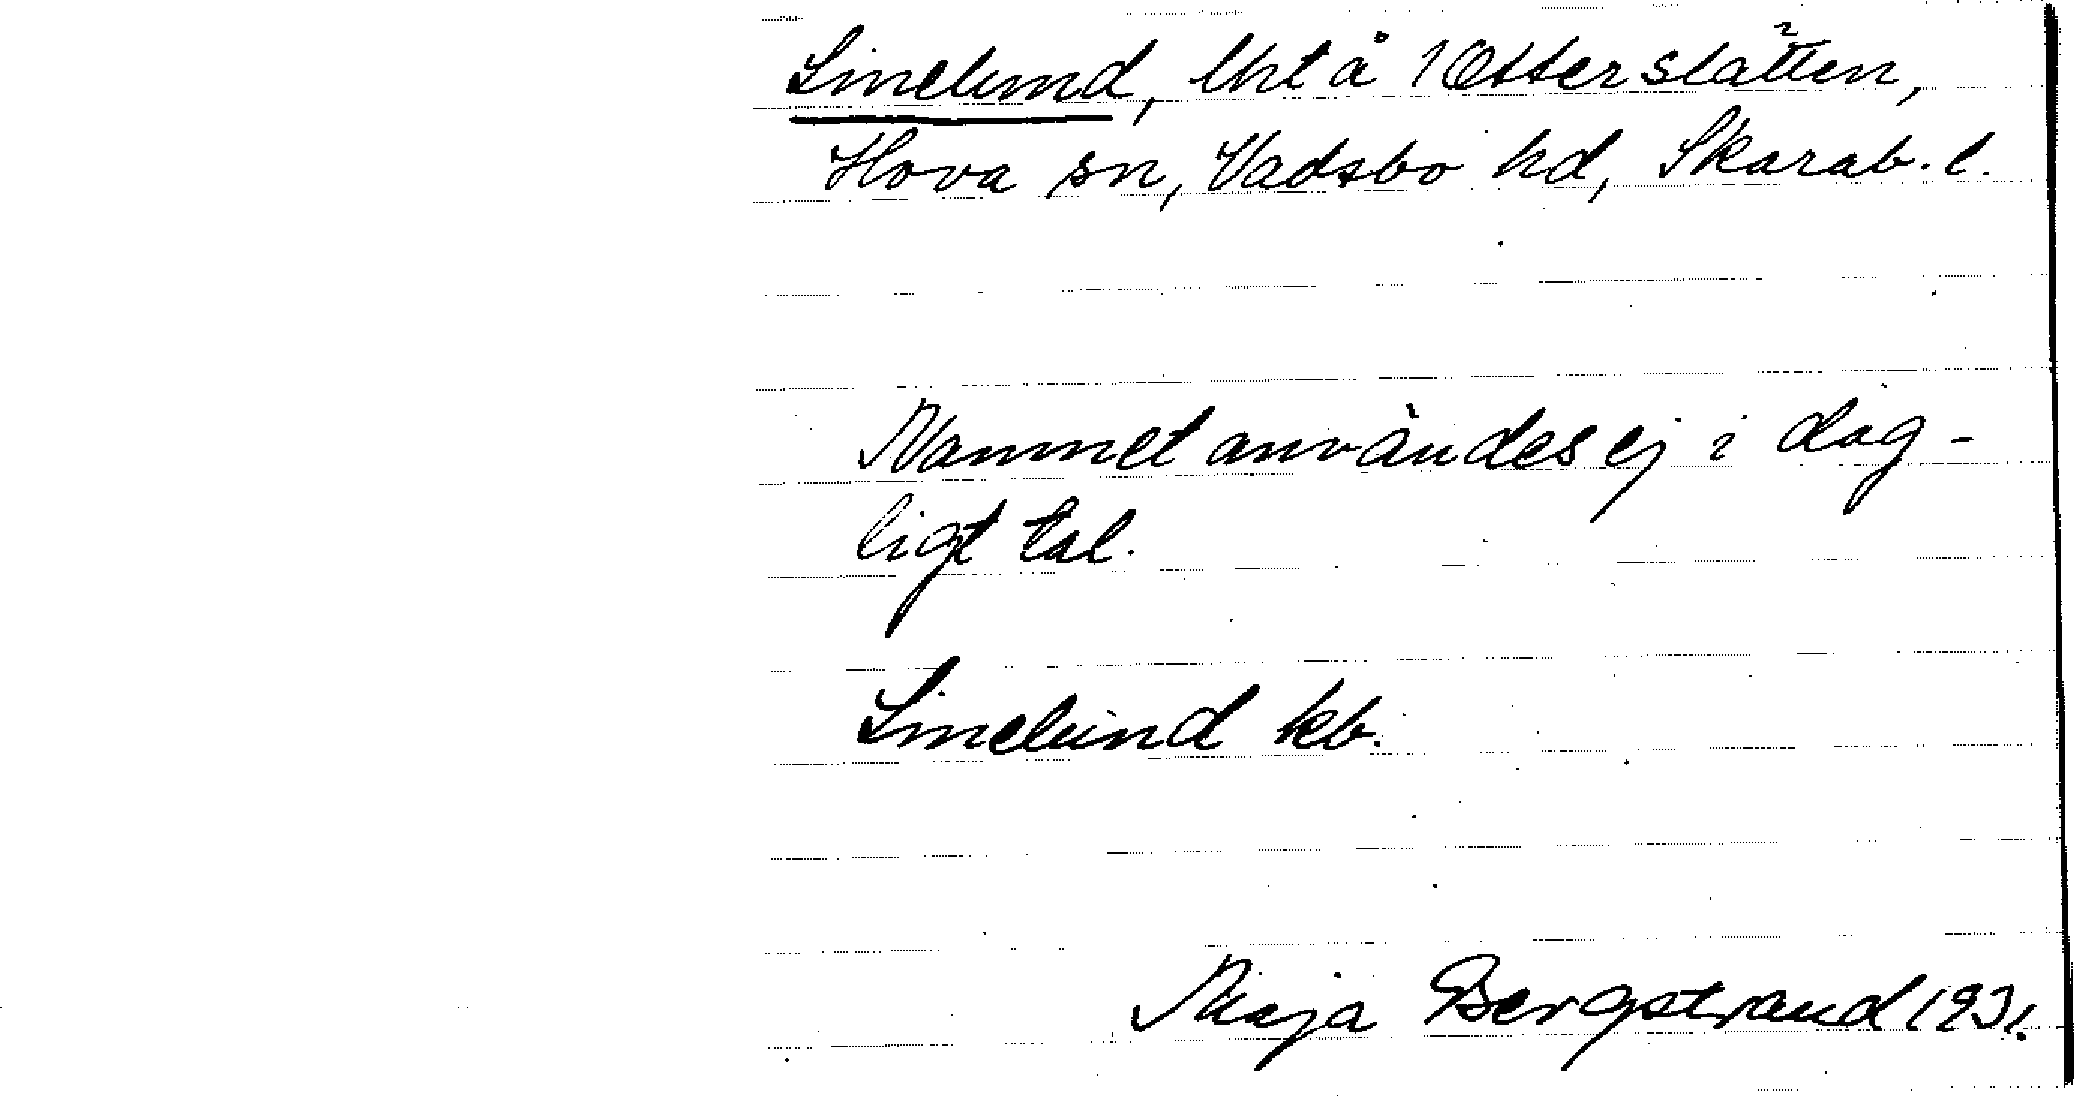 Linelund, lht å 1 Otterslätten,
Hova sn, Vadsbo hd, Skarab. l.
Namnet användes ej i dag-
ligt tal.
Linelund kb.
Maja Bergstrand 1931.